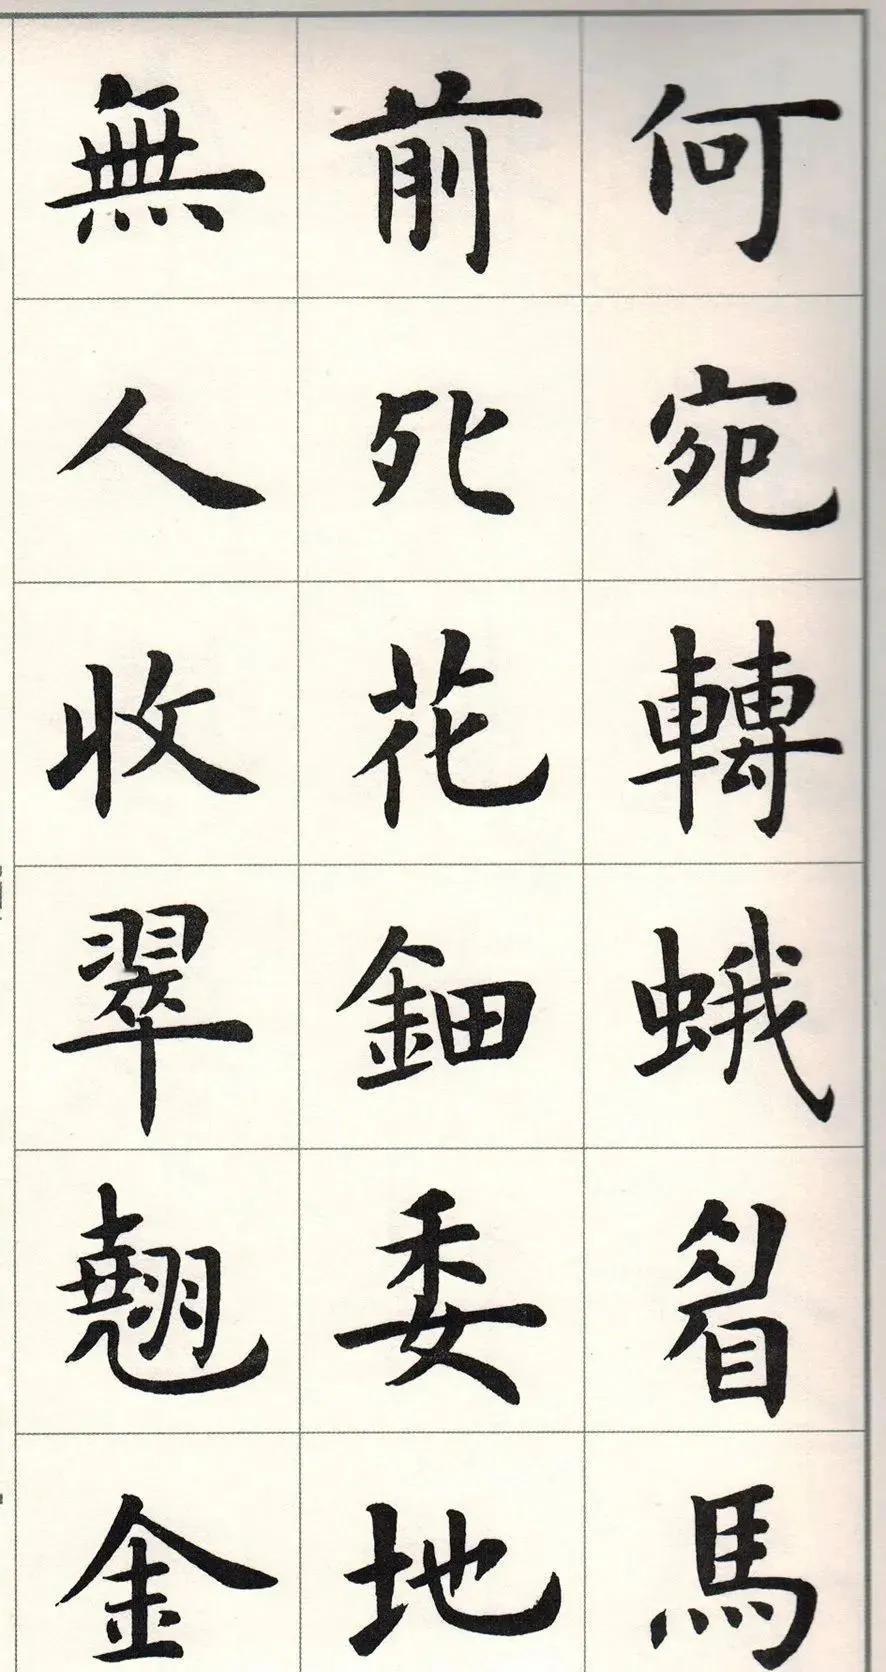 何宛轉蛾眉馬
前死花鈿委地
無人收翠翹金